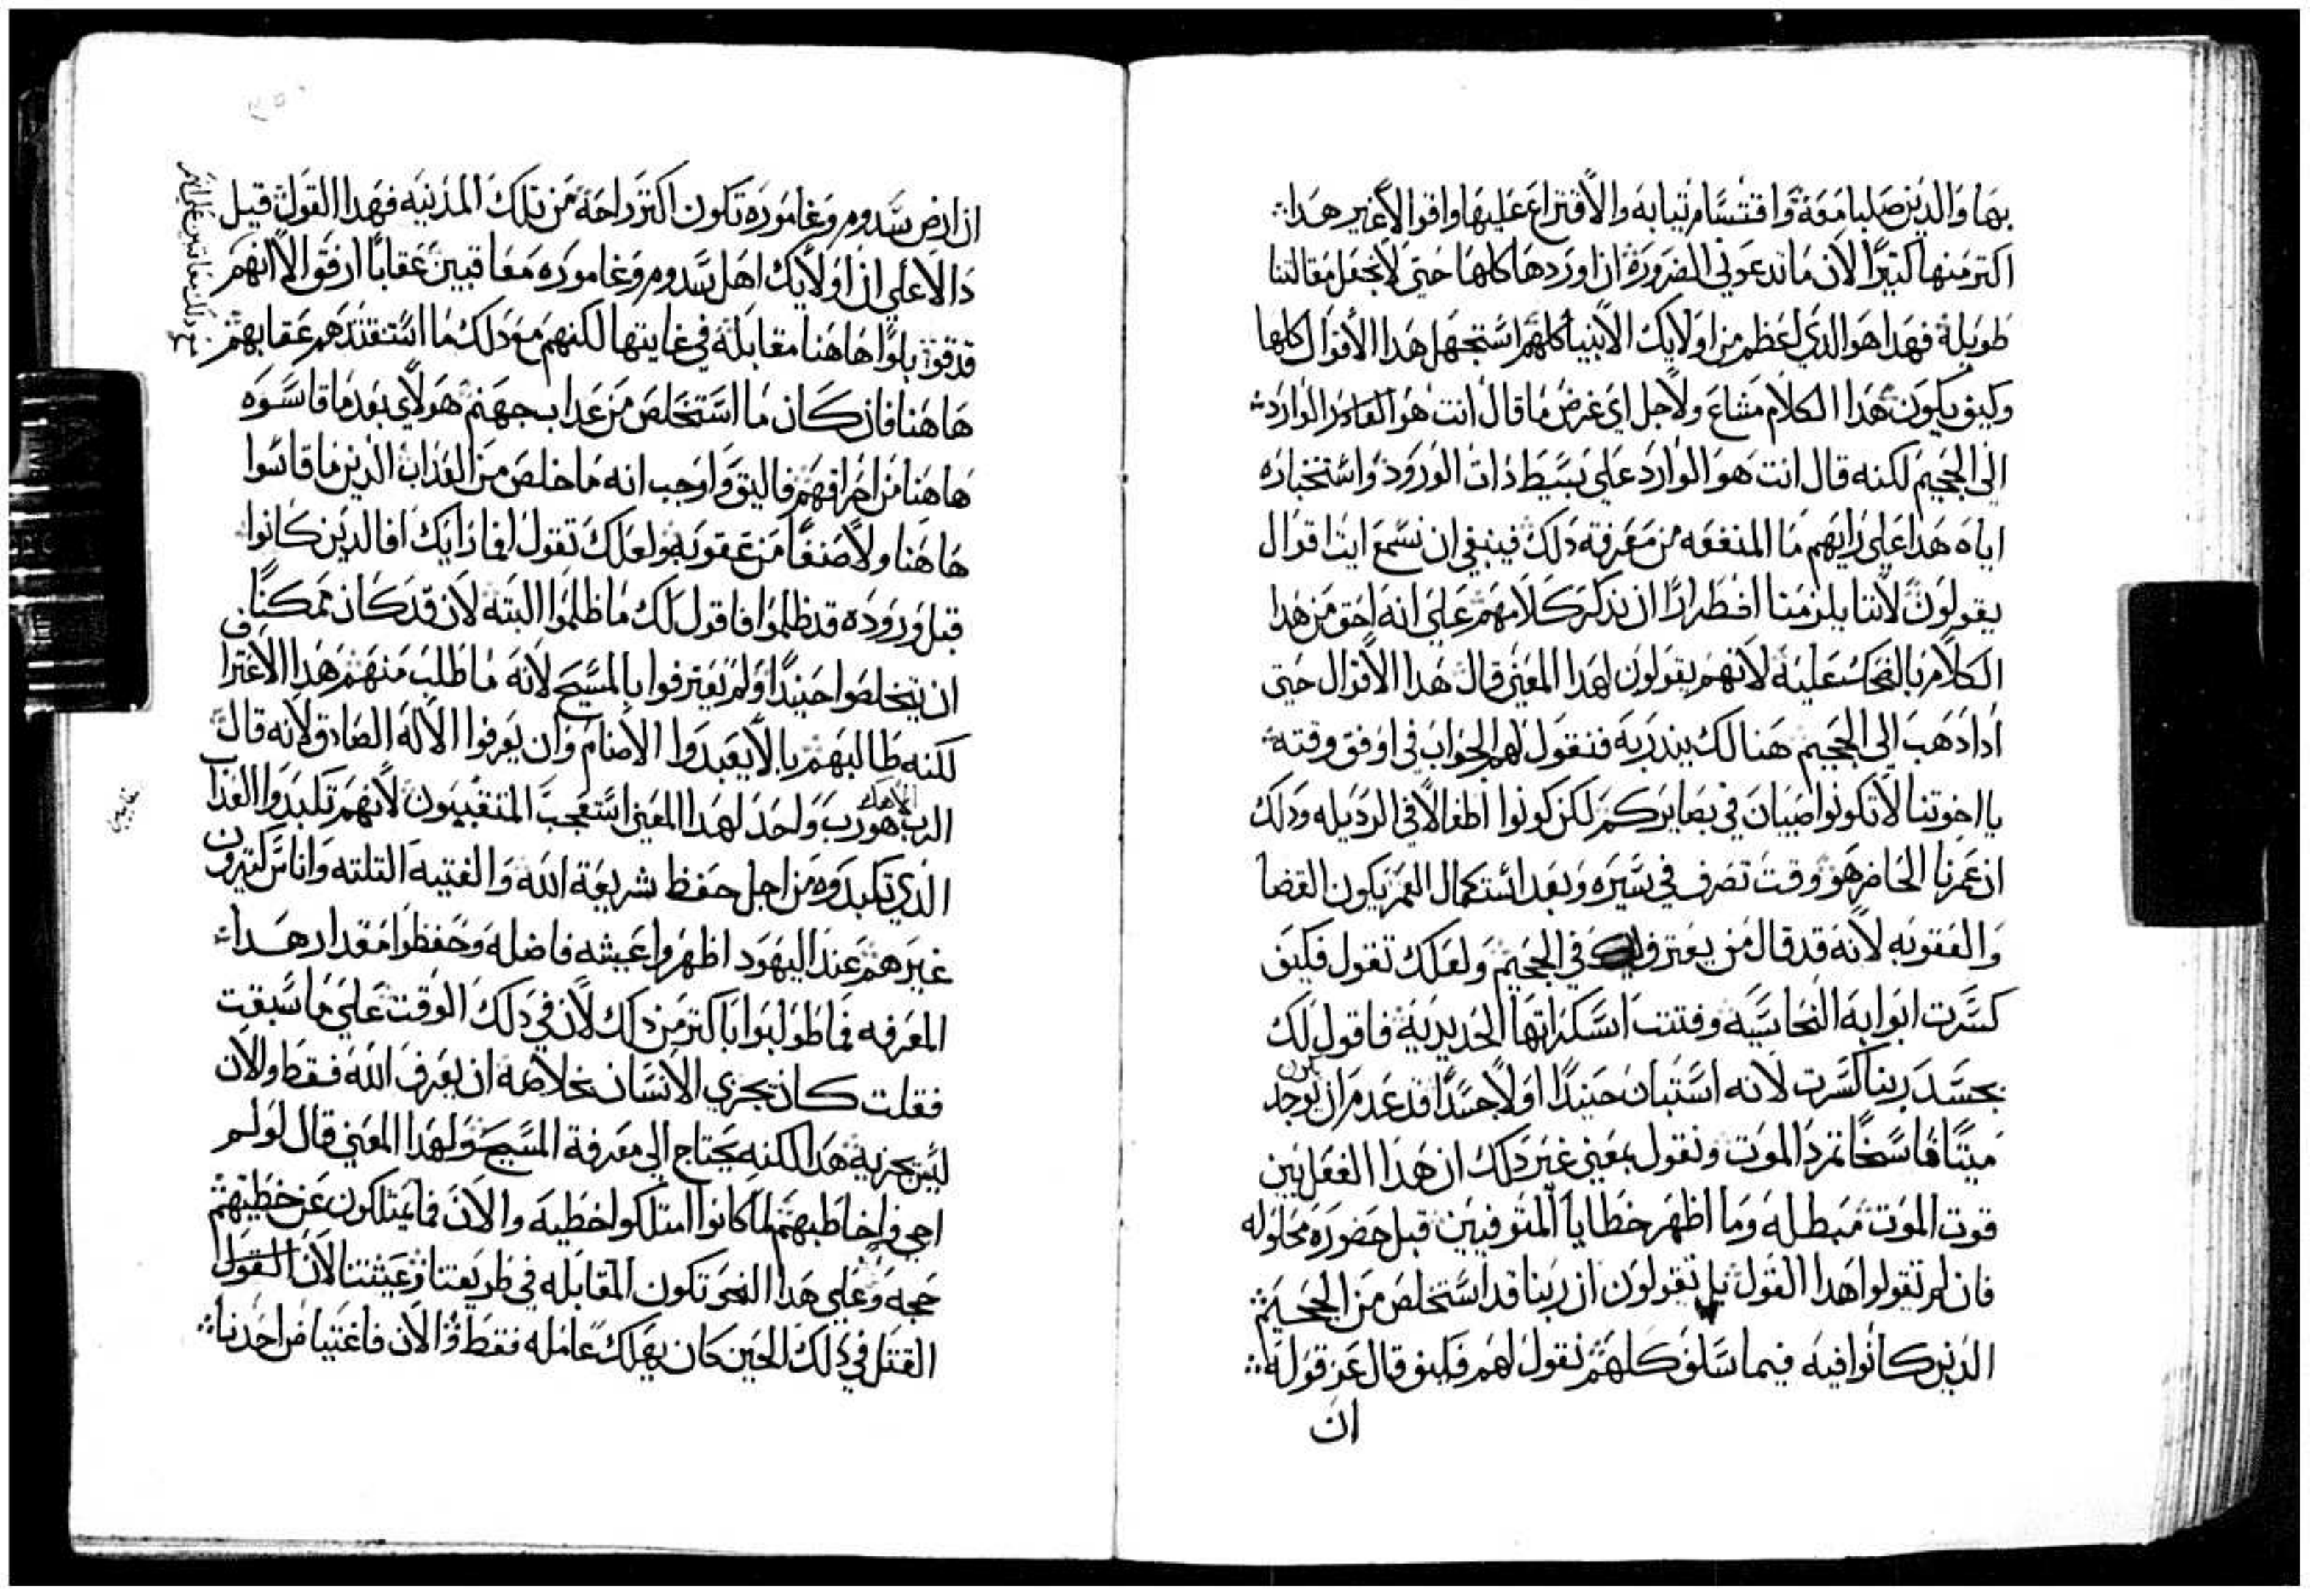 بها والدين صلبا معه واقتسام تيابه والاقتراع عليها واقوالا غير هدا
اكتر منها كتيرا الان ما تدعوني الضروره ان اوردها كلها حتى لا نجعل مقالتنا
طويله فهدا هو الدي اعظم من اولايك الانبيا كلهم استجهل هدا الاقوال كلها
وكيف يكون هدا الكلام مشاع ولاجل اي غرض ما قال انت هو الوارد
الى الجحيم لكنه قال انت هو الوارد على بسيط دات الورود واستخباره
اياه هدا على رايهم ما المنفعه من معرفة دلك فينبغي ان نسمع ايت اقوال
يقولون لاننا يلزمنا اضطرارا ان ندكر كلامهم على انه احق من هدا
الكلام بالضحك عليه لانهم يقولون لهدا المعنى قال هدا الاقوال حتى
ادا دهب الى الجحيم هنالك يندر به فنقول لهم الجواب في اوفق وقته
يا اخوتنا لا تكونوا صبيان في بصايركم لكن كونوا اطفالا في الرديله ودلك
ان عمرنا الحاضر هو وقت تصرف في سيره وبعد استكمال العمر يكون القضا
والعقوبه لانه قد قال من يعترف لك في الجحيم ولعلك تقول فكيف
كسرت ابوابه النحاسيه وفتتت اسكراتها الحديديه فاقول لك
بجسد ربنا كسرت لانه استبان حينيدا اولا جسدا قد عدم ان يوجد
ميتا فاسخا تمرد الموت ونقول بمعنى غير دلك ان هدا الفعل يبين
قوت الموت مبطله وما اظهر خطايا المتوفيين قبل حضوره محلوله
فان لم تقولوا هدا القول بل تقولون ان ربنا قد استخلص من الجحيم
الدين كانوا فيه فيما سلف كلهم نقول لهم فكيف قال عز قوله
ان
ان ارض سدوم وغاموره تكون اكتر راحة من تلك المدينه فهدا القول قيل
دالا على ان اولايك اهل سدوم وغاموره معاقبين عقابا ارفق الا انهم
قد قوبلوا هاهنا مقابلة في غايتها لكنهم مع دلك ما استنقدهم عقابهم
هاهنا فان كان ما استخلص من عداب جهنم هولاي بعد ما قاسوه
هاهنا من فاليق واوجب انه ما خلص من العداب الدين ما قاسوا
هاهنا ولا صنفا من عقوبه ولعلك تقول افما رايك افالدين كانوا
قبل وروده قد ظلموا فاقول لك ما ظلموا البته لان قد كان ممكنا
ان يتخلصوا حينيدا ولم يعترفوا بالمسيح لانه ما طلب منهم هدا الاعتراف
لكنه طالبهم بالا يعبدوا الاصنام وان يعرفوا الاله الصادق لانه قال
الرب الاهك هو رب واحد لهدا المعنى استعجب المتنقبيون لانهم تكبدوا العداب
الدي تكبدوه من اجل حفظ شريعة الله والفتيه التلته واناس كتيرون
غيرهم عند اليهود اظهروا عيشه فاضله وحفظوا مقدار هدا
المعرفه فما طولبوا باكتر من دلك لان في دلك الوقت على ما سبقت
فقلت كان يجزي الانسان بخلاصه ان يعرف الله فقط والان
ليس يجزيه هدا لكنه يحتاج الى معرفة المسيح ولهدا المعنى قال لو لم
اجي واخاطبهم لما كانوا امتلكوا خطيه والان فما يمتلكون عن خطيتهم
حجه وعلى هدا النحو تكون المقابله في طريقتنا وعيشتنا لان القول
القتل في دلك الحين كان يهلك عامله فقط والان فاغتياض احدنا